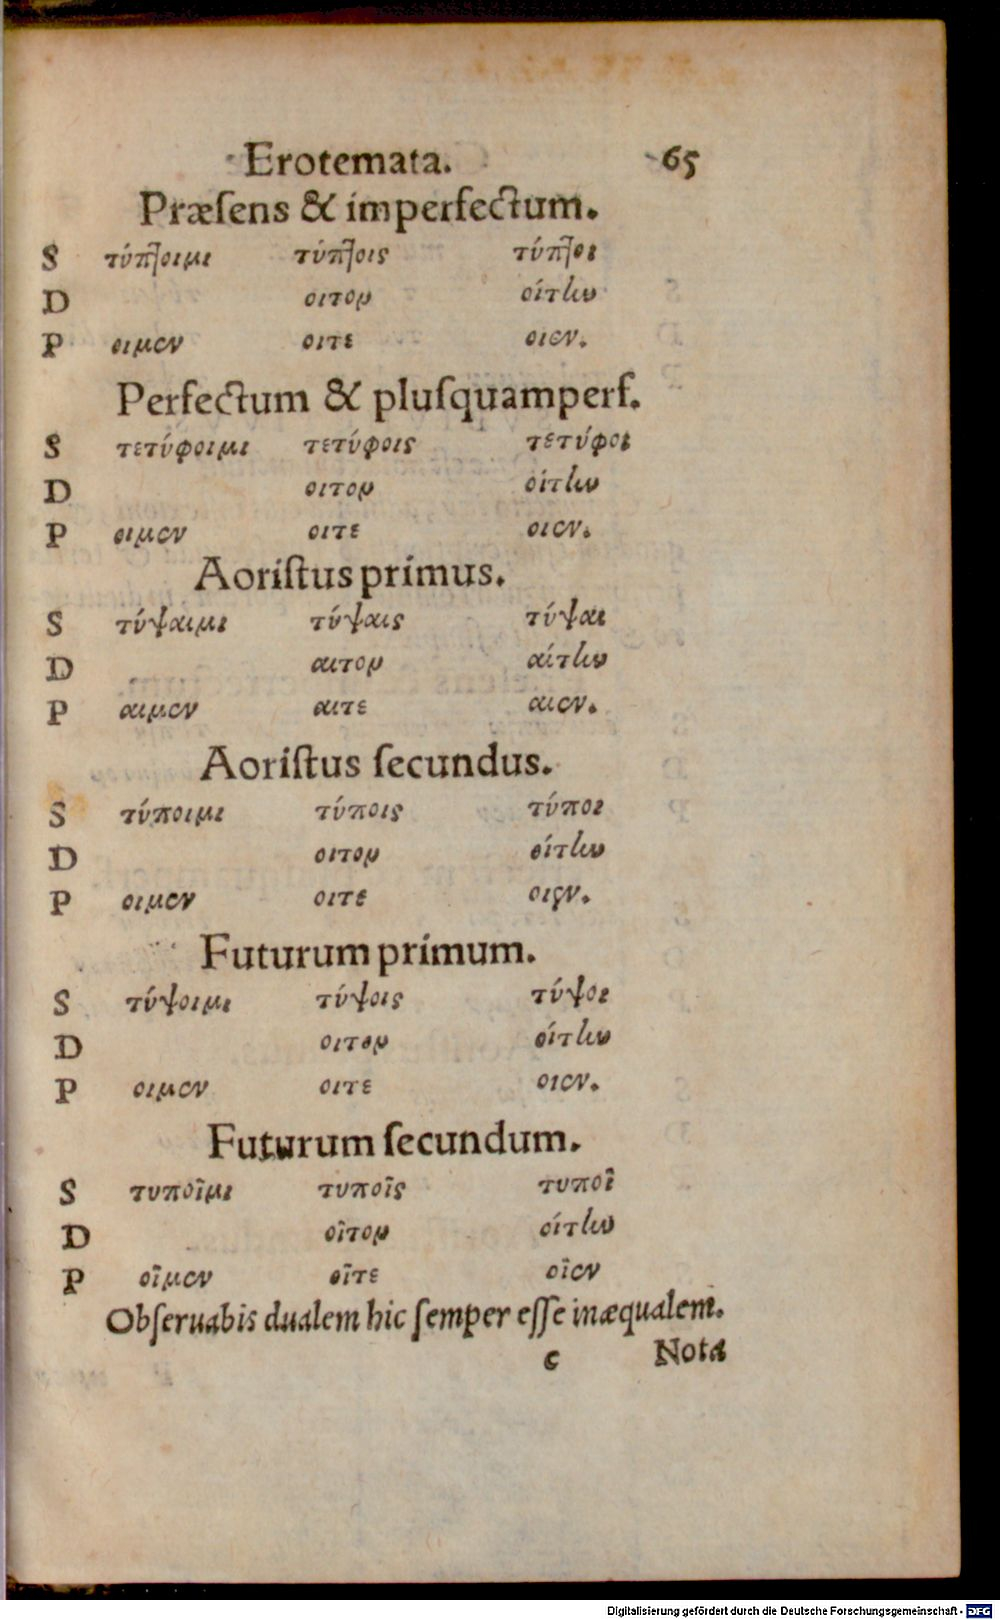 Erotemata. 65
Præsens & imperfectum.
S τύπτοιμι τύπτοις τύπτοι
D οιτον οίτην
P οιμεν οιτε οιεν.
Perfectum & plusquamperf.
S τετύφοιμι τετύφοις τετύφοι
D οιτον οίτην
P οιμεν οιτε οιεν.
Aoristus primus.
S τύψαιμι τύψαις τύψαι
D αιτον αίτην
P αιμεν αιτε αιεν.
Aoristus secundus.
S τύποιμι τύποις τύποι
D οιτον οίτην
P οιμεν οιτε οιεν.
Futurum primum.
S τύψοιμι τύψοις τύψοι
D οιτον οίτην
P οιμεν οιτε οιεν.
Futurum secundum.
S τυποῖμι τυποῖς τυποῖ
D οῖτον οίτην
P οῖμεν οῖτε οῖεν
Obseruabis dualem hic semper esse inæqualem.
c Nota
Digitalisierung gefördert durch die Deutsche Forschungsgemeinschaft - DFG